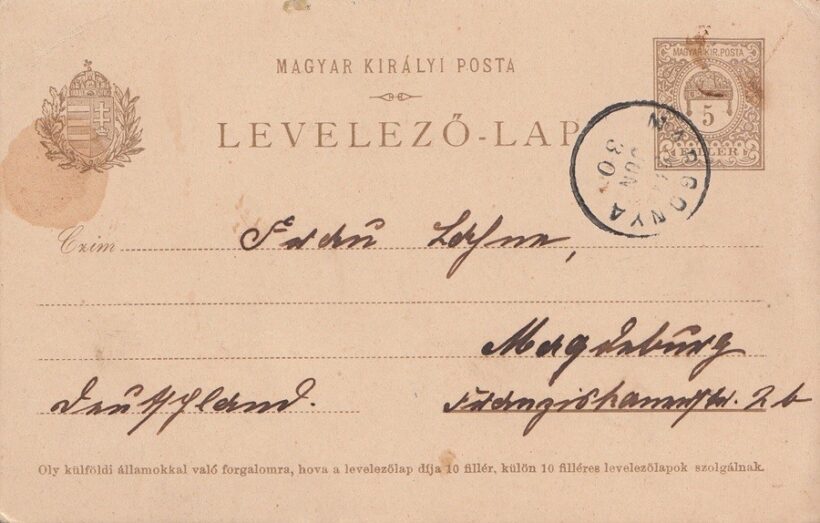 MAGYAR KIRÁLYI POSTA
LEVELEZŐ-LAP
MAGYAR KIR. POSTA
5
FILLÉR
MARGONYA
JUN
30
Czim
Frau Lehne,
Magdeburg
Deutschland.
Franziskanerstr. 2 b
Oly külföldi államokkal való forgalomra, hova a levelezőlap díja 10 fillér, külön 10 filléres levelezőlapok szolgálnak.